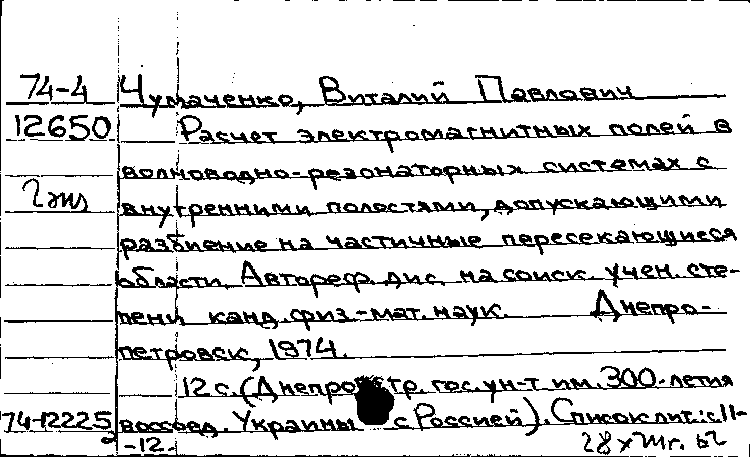 74-4 Чумаченко, Виталий Павлович
12650 Расчет электромагнитных полей в
волноводно-резонаторных системах с
2 экз внутренними полостями, допускающими
разбиение на частичные пересекающиеся
области. Автореф. дис. на соиск. учен. сте-
пени канд. физ.-мат. наук. Днепро-
петровск, 1974.
12 с. (Днепропетр. гос. ун-т им. 300-летия
74-12225 воссоед. Украины с Россией). Список лит.: с.11-
-12.